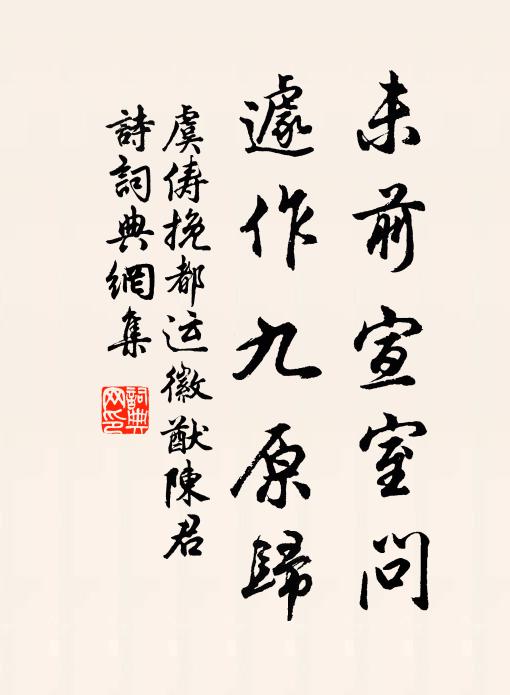 未前宣室問
遽作九原歸
虞俦挽都运徽猷陳君
詩詞典網集
詞典网印